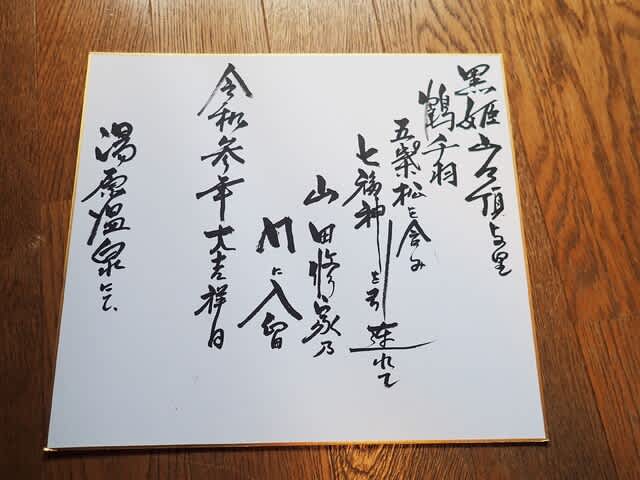 黒姫山々頂与里
鶴千羽
五葉松を含み
七福神を引連れて
山田修家乃
門に入留
令和参年大吉祥日
湯原温泉にて